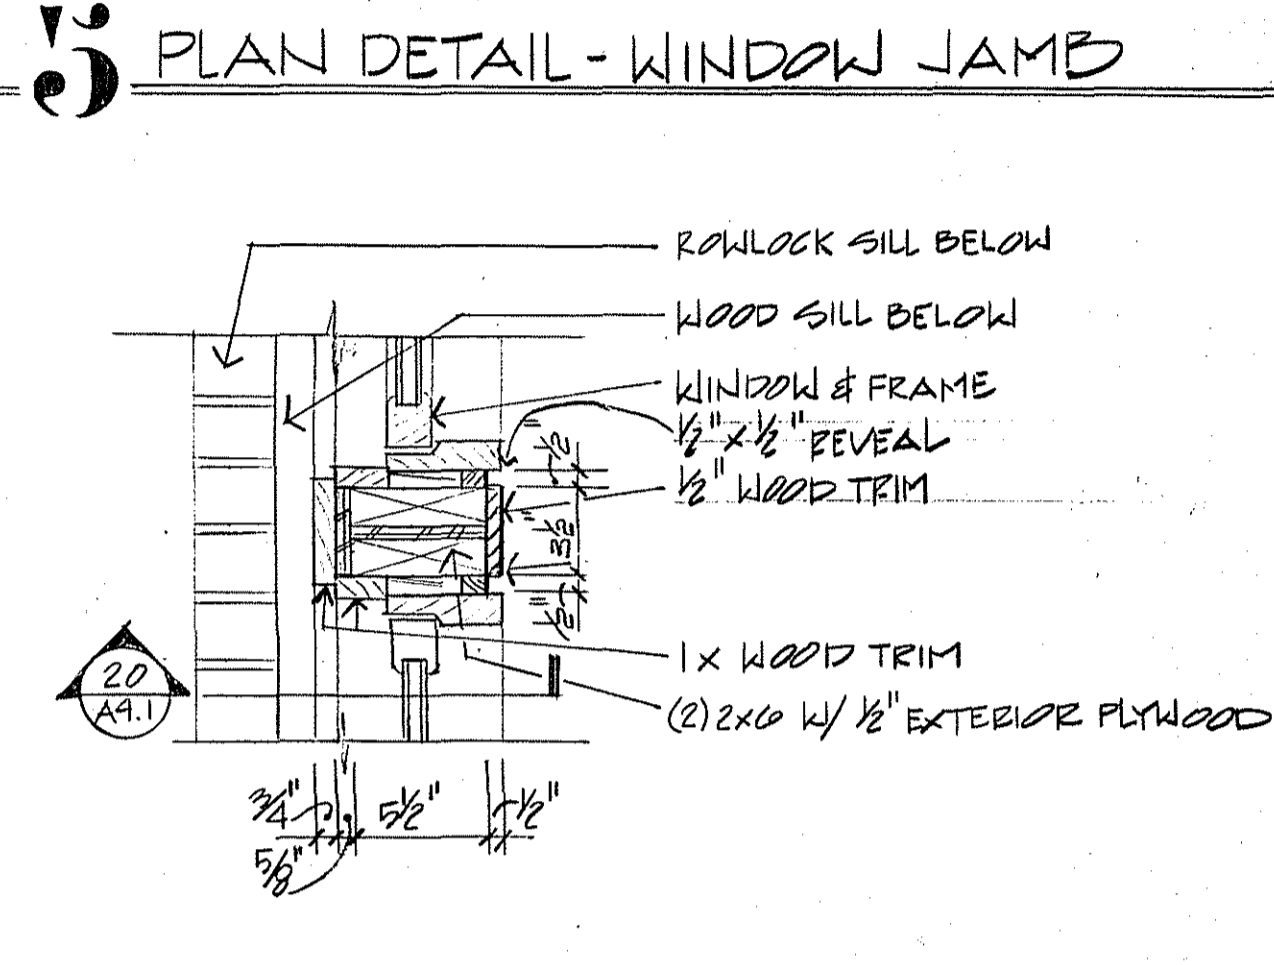 5 PLAN DETAIL - WINDOW JAMB
ROWLOCK SILL BELOW
WOOD SILL BELOW
WINDOW & FRAME
1/2" x 1/2" REVEAL
1/2" WOOD TRIM
1/2"
3 1/2"
1/2"
1 x WOOD TRIM
(2) 2x6 W/ 1/2" EXTERIOR PLYWOOD
20
A4.1
3/4"
5/8"
5 1/2"
1/2"